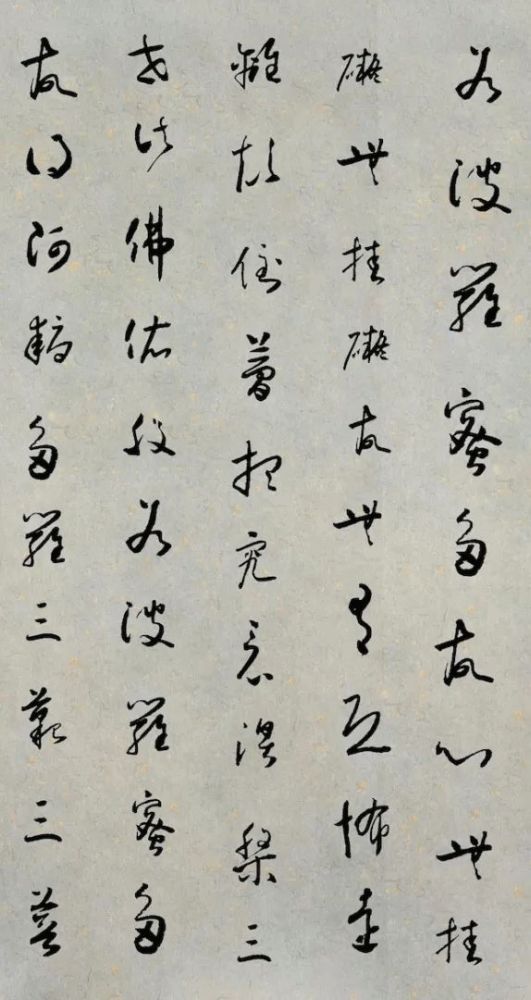 若波羅蜜多故心無挂
礙無挂礙故無有恐怖遠
離顛倒夢想究竟涅槃三
世諸佛依般若波羅蜜多
故得阿耨多羅三藐三菩